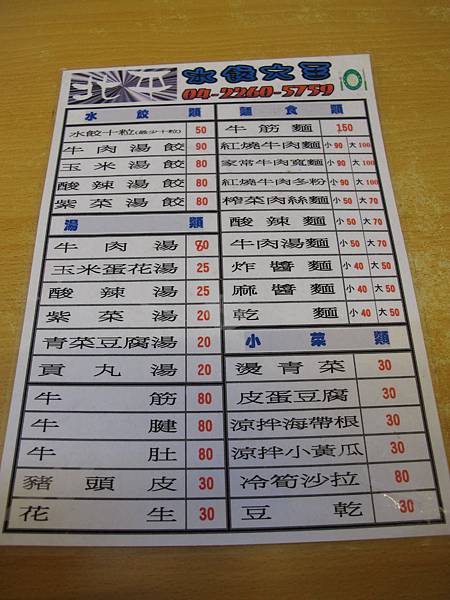 北平 水餃大王
04-2260-5759
水餃類
水餃十粒(最少十粒) 50
牛肉湯餃 90
玉米湯餃 80
酸辣湯餃 80
紫菜湯餃 80
湯類
牛肉湯
玉米蛋花湯 25
酸辣湯 25
紫菜湯 20
青菜豆腐湯 20
貢丸湯 20
牛筋 80
牛腱 80
牛肚 80
豬頭皮 30
花生 30
麵食類
牛筋麵 150
紅燒牛肉麵 小90 大100
家常牛肉寬麵 小90 大100
紅燒牛肉冬粉 小90 大100
榨菜肉絲麵 小50 大70
酸辣麵 小50 大70
牛肉湯麵 小50 大70
炸醬麵 小40 大50
麻醬麵 小40 大50
乾麵 小40 大50
小菜類
燙青菜 30
皮蛋豆腐 30
涼拌海帶根 30
涼拌小黃瓜 30
冷筍沙拉 80
豆乾 30